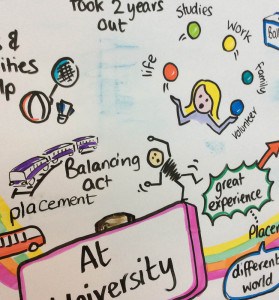 took 2 years
out
studies
work
life
family
volunteer
&
Balancing
act
placement
great
experience
At
University
different
world